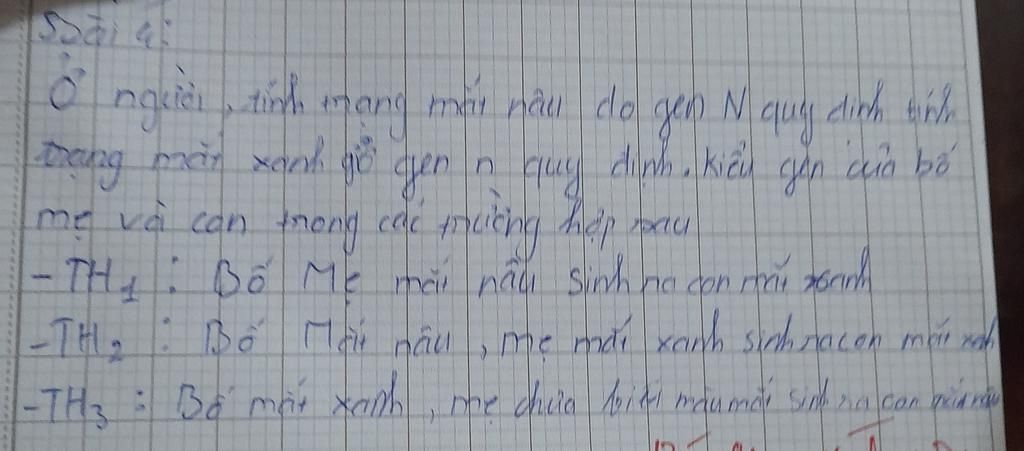 Bài 4:
Ở người, tính trạng mắt nâu do gen N quy định tính
trạng mắt xanh gờ gen n quy định. Kiểu gen của bố
mẹ và con trong các trường hợp sau
- TH1 : Bố Mẹ mắt nâu sinh ra con mắt xanh
- TH2 : Bố Mắt nâu, mẹ mắt xanh sinh ra con mắt xanh
- TH3 : Bố mắt xanh, mẹ chưa biết màu mắt sinh ra con mắt nâu